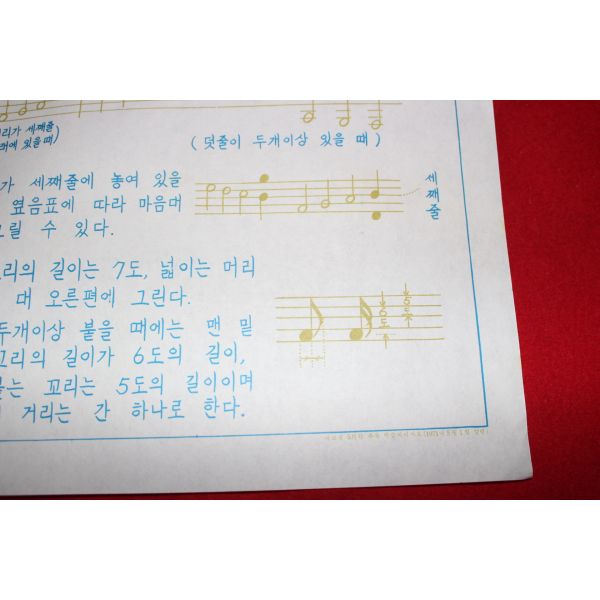 리가 세째줄
래에 있을때)
( 덧줄이 두개이상 있을 때 )
가 세째줄에 놓여 있을
옆음표에 따라 마음대
그릴 수 있다.
세째줄
꼬리의 길이는 7도, 넓이는 머리
대 오른편에 그린다.
두개이상 붙을 때에는 맨 밑
꼬리의 길이가 6도의 길이,
붙는 꼬리는 5도의 길이이며
거리는 간 하나로 한다.
6도
5도